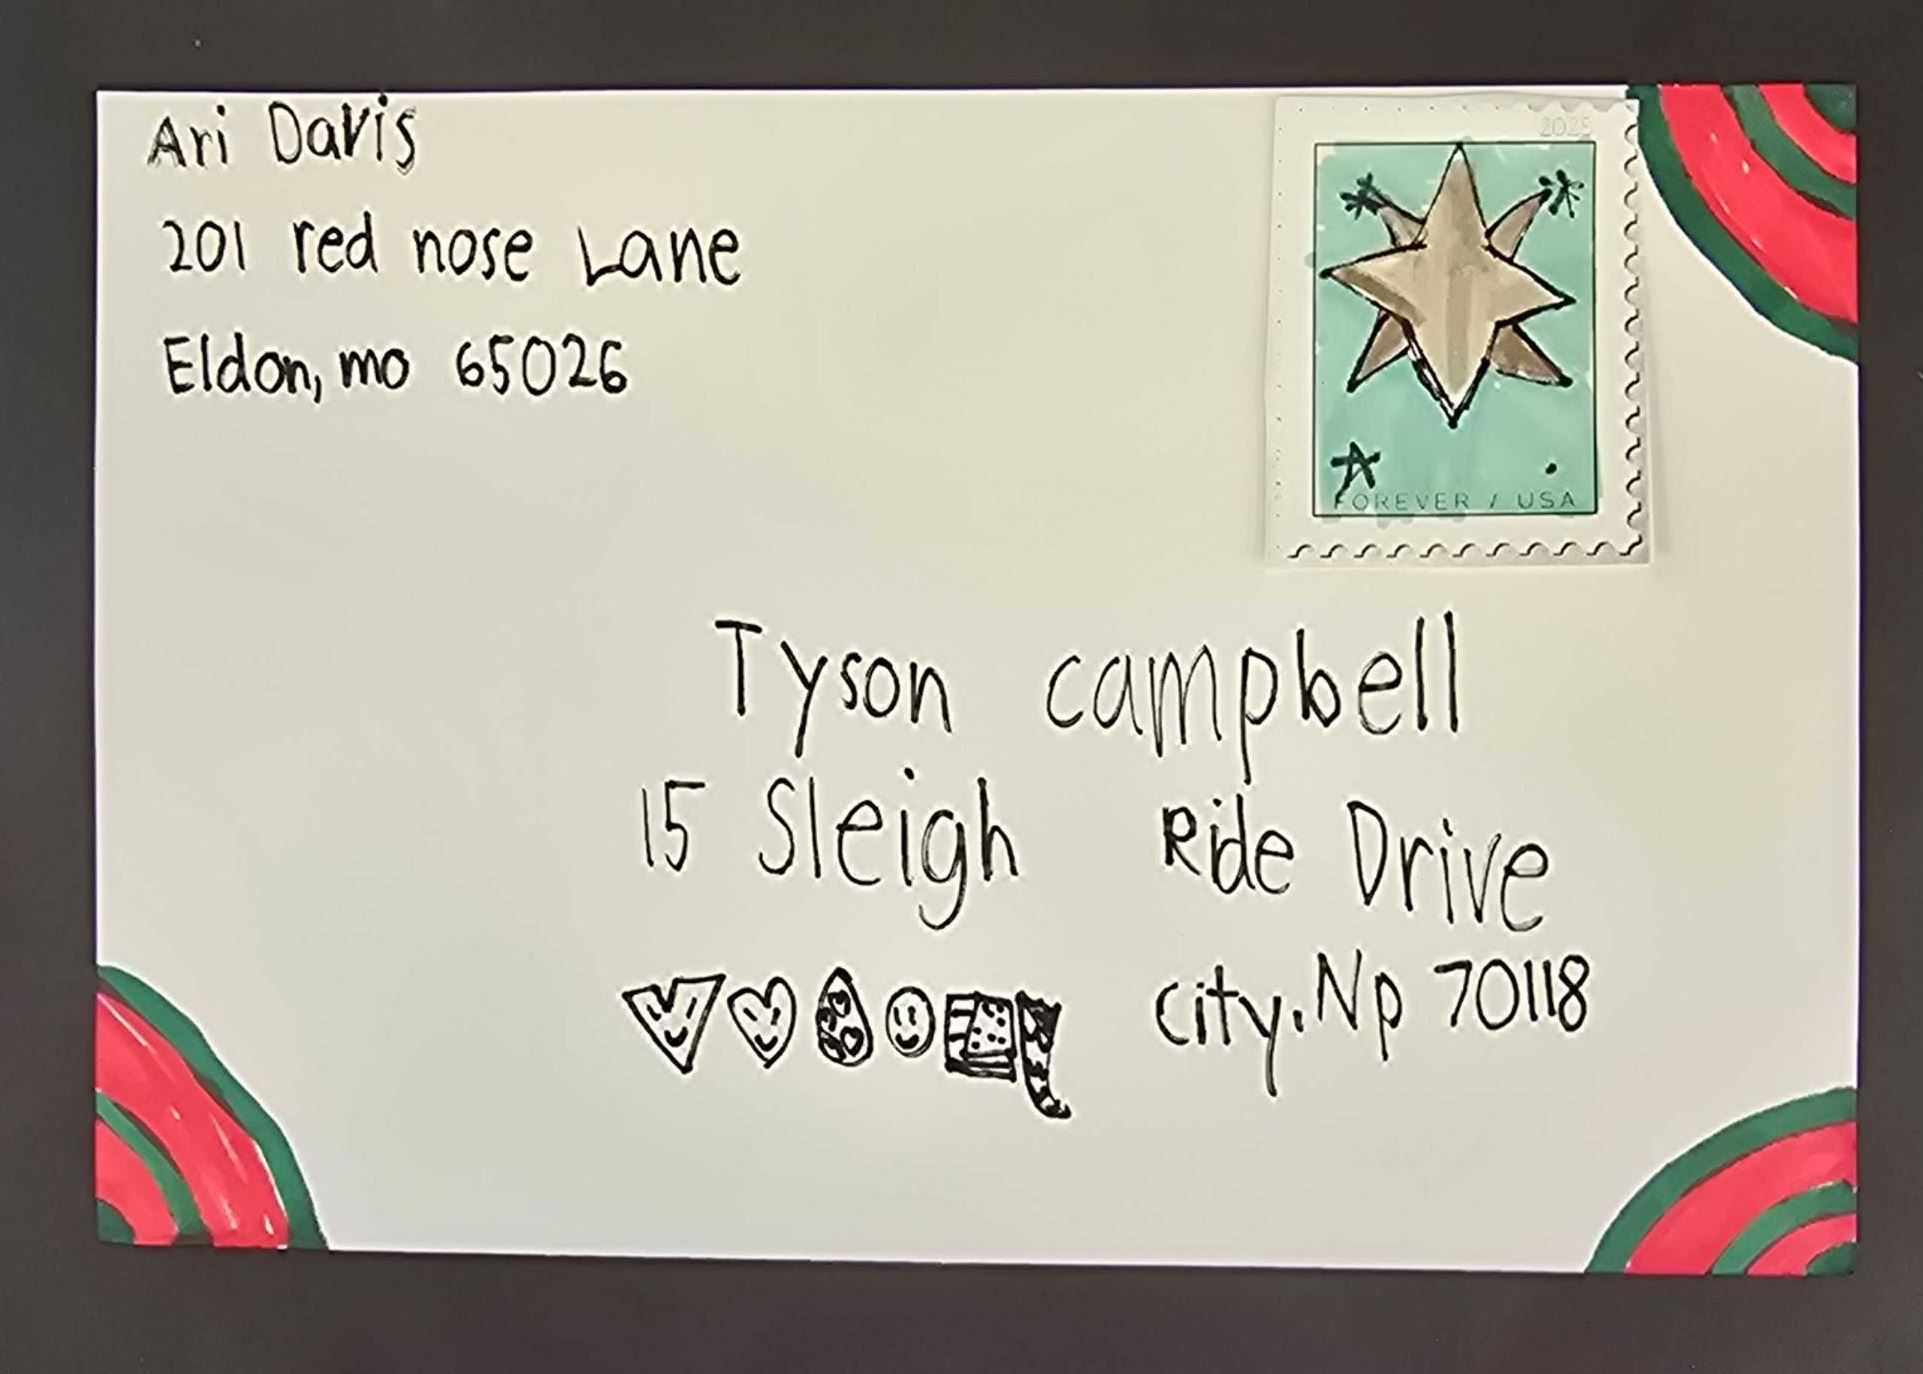 Ari Davis
201 red nose Lane
Eldon, mo 65026
2025
FOREVER / USA
Tyson campbell
15 Sleigh Ride Drive
city, Np 70118